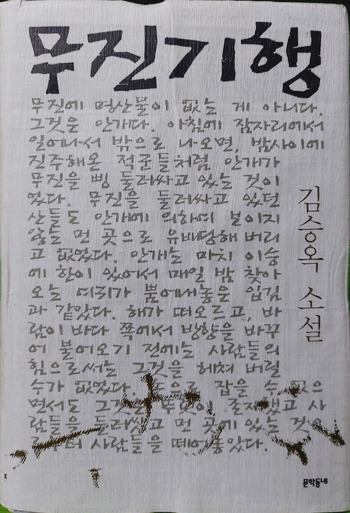 무진기행
무진에 명산물이 없는 게 아니다.
그것은 안개다. 아침에 잠자리에서
일어나서 밖으로 나오면, 밤사이에
진주해온 적군들처럼 안개가
무진을 삥 둘러싸고 있는 것이
었다. 무진을 둘러싸고 있던
산들도 안개에 의하여 보이지
않는 먼 곳으로 유배당해버리
고 없었다. 안개는 마치 이승
에 한이 있어서 매일 밤 찾아
오는 여귀가 뿜어내놓은 입김
과 같았다. 해가 떠오르고, 바
람이 바다 쪽에서 방향을 바꾸
어 불어오기 전에는 사람들의
힘으로써는 그것을 헤쳐 버릴
수가 없었다. 손으로 잡을 수 없으
면서도 그것은 존재했고 사
람들을 둘러싸고 먼 곳에 있는 것
사람들을 떼어놓았다.
김승옥 소설
문학동네